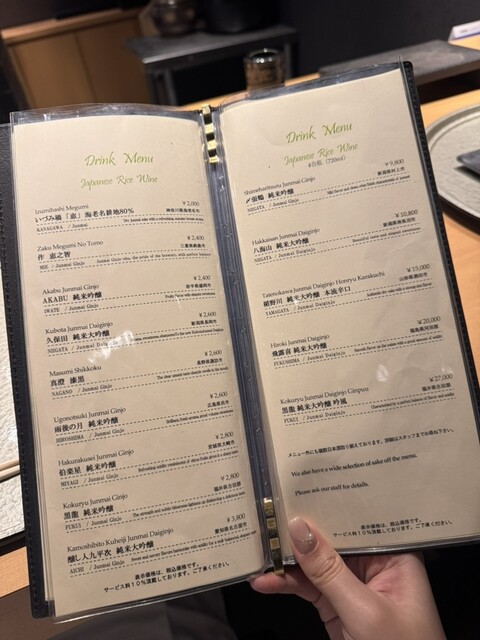 Drink Menu
Japanese Rice Wine
Izumibashi Megumi ¥2,000
いづみ橋「恵」海老名耕地80%
KANAGAWA / Junmai
Zaku Megumi No Tomo ¥2,400
作 恵之智 三重県鈴鹿市
MIE / Junmai Ginjo
Akabu Junmai Ginjo ¥2,400
AKABU 純米吟醸 岩手県盛岡市
IWATE / Junmai Ginjo
Kubota Junmai Daiginjo ¥2,600
久保田 純米大吟醸 新潟県長岡市
NIIGATA / Junmai Daiginjo
Masumi Shikkoku ¥2,600
真澄 漆黒 長野県諏訪市
NAGANO / Junmai Ginjo
Ugonotsuki Junmai Ginjo ¥2,600
雨後の月 純米吟醸 広島県呉市
HIROSHIMA / Junmai Ginjo
Hakurakusei Junmai Ginjo ¥2,800
伯楽星 純米吟醸 宮城県大崎市
MIYAGI / Junmai Ginjo
Kokuryu Junmai Ginjo ¥2,800
黒龍 純米吟醸 福井県吉田郡
FUKUI / Junmai Ginjo
Kamoshibito Kuheiji Junmai Daiginjo ¥3,800
醸し人九平次 純米大吟醸 愛知県名古屋市
AICHI / Junmai Ginjo
表示価格は、税込価格です。
サービス料10%頂戴しております。ご了承ください。
Drink Menu
Japanese Rice Wine
4合瓶(720ml)
Shimeharitsuru Junmai Ginjo ¥9,800
〆張鶴 純米吟醸 新潟県村上市
NIIGATA / Junmai Ginjo
Hakkaisan Junmai Daiginjo ¥10,800
八海山 純米大吟醸 新潟県南魚沼市
NIIGATA / Junmai Daiginjo
Tatenokawa Junmai Daiginjo Honryu Karakuchi ¥15,000
楯野川 純米大吟醸 本流辛口 山形県酒田市
YAMAGATA / Junmai Daiginjo
Hiroki Junmai Ginjo ¥20,000
飛露喜 純米大吟醸 福島県河沼郡
FUKUSHIMA / Junmai Daiginjo
Kokuryu Junmai Daiginjo Ginpuu ¥27,000
黒龍 純米大吟醸 吟風 福井県吉田郡
FUKUI / Junmai Ginjo
メニュー外にも複数日本酒取り揃えております。詳細はスタッフまでお尋ね下さい。
We also have a wide selection of sake off the menu.
Please ask our staff for details.
表示価格は、税込価格です。
サービス料10%頂戴しております。ご了承ください。